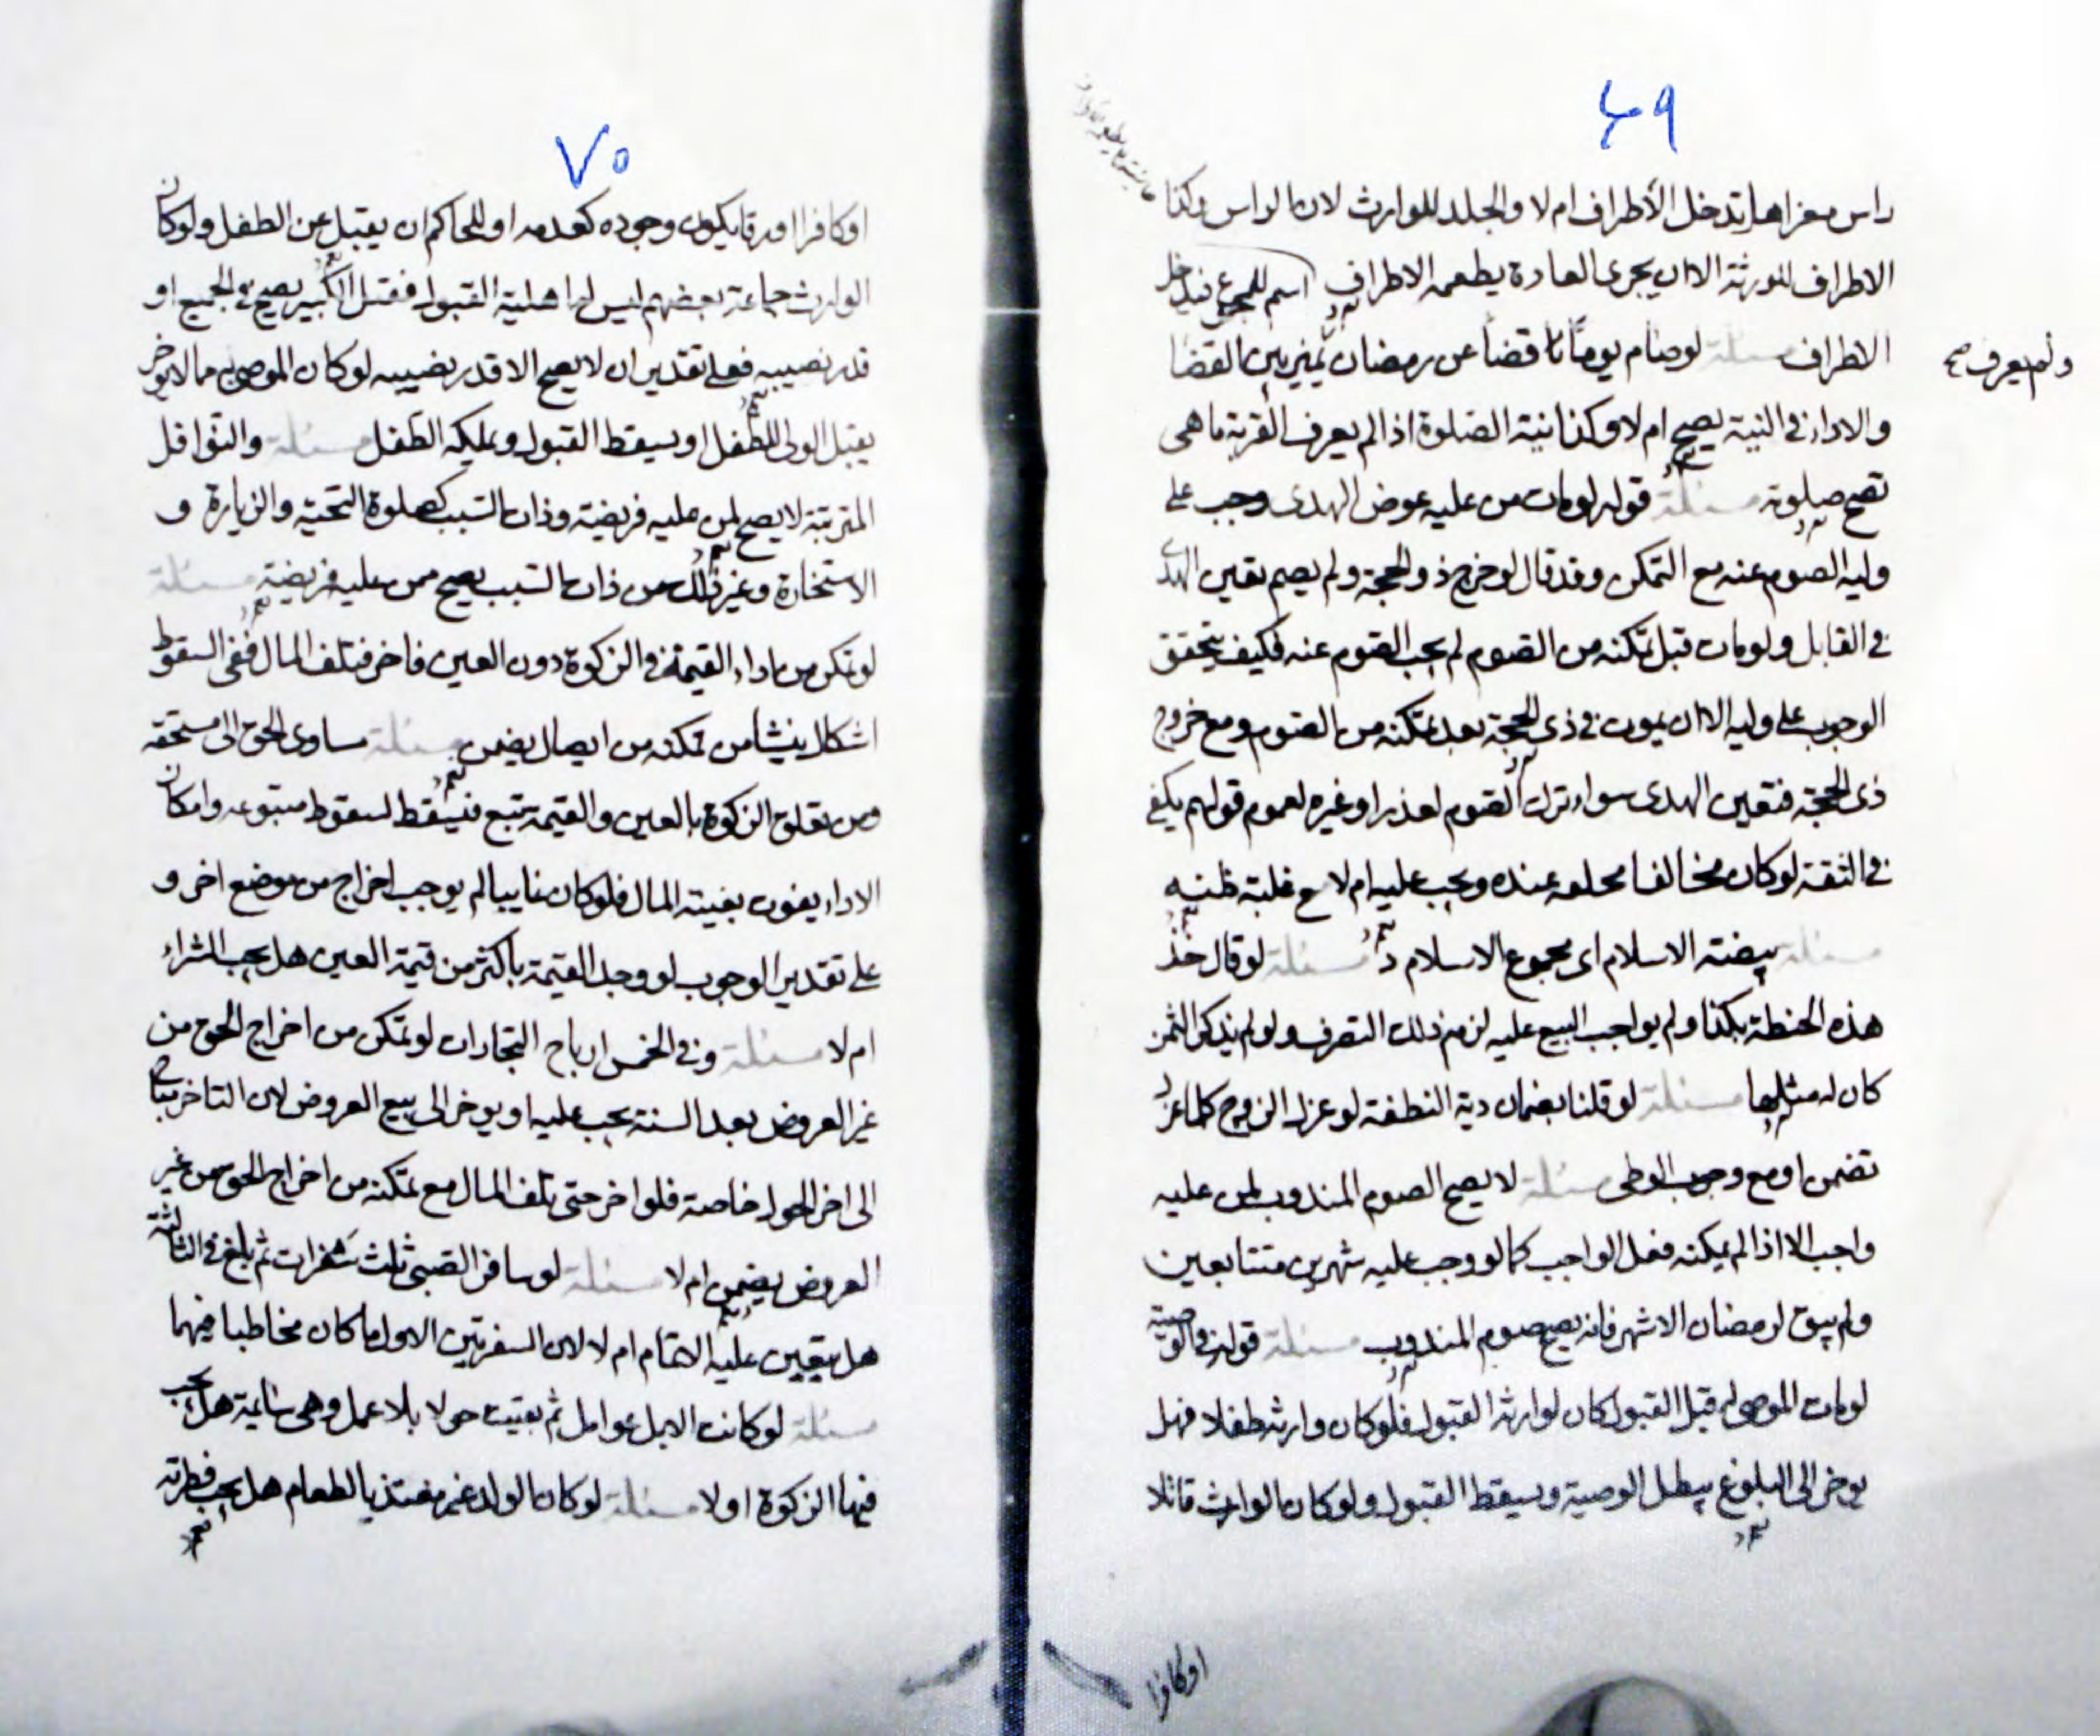 ٦٩
راس معزا هل تدخل الأطراف ام لا والجلد للوارث لان الراس وكذا
الاطراف للورثة الا ان يجرى العادة يطعمه الاطراف اسم للمجموع فيدخل
الاطراف مسئلة لو صام يوماً قضاً عن رمضان يميز بين القضا
ولم يعرف صح
والاداء فى النية يصح ام لا وكذا نية الصلوة اذا لم يعرف القربة ما هى
تصح صلوته مسئلة قوله لو مات من عليه عوض الهدى وجب على
وليه الصوم عنه مع التمكن وقد قال لو خرج ذو الحجة ولم يصم تعين الهدى
فى القابل ولو مات قبل تمكنه من الصوم لم يجب الصوم عنه فكيف يتحقق
الوجوب على وليه الا ان يموت فى ذى الحجة بعد تمكنه من الصوم ومع خروج
ذى الحجة فتعين الهدى سواء ترك الصوم لعذر او غيره لعموم قولهم يكفى
فى الثقة لو كان مخالفا محلعه عنده ويجب عليه ام لا مع غلبة ظنه
مسئلة بيضة الاسلام اى مجموع الاسلام مسئلة لو قال خذ
هذه الحنطة بكذا ولم يواجب البيع عليه لزم ذلك التصرف ولو لم يذكر الثمن
كان له مثلها مسئلة لو قلنا بضمان دية النطفة لو عزل الزوج كلما عزل
تضمن او مع وجوب الوطى مسئلة لا يصح الصوم المندوب لمن عليه
واجب الا اذا لم يمكنه فعل الواجب كما لو وجب عليه شهرين متتابعين
ولم يبق لرمضان الا شهر فانه يصح صوم المندوب مسئلة قوله فى الوصية
لو مات الموصى له قبل القبول كان لوارثه القبول فلو كان وارثه طفلا فهل
يوخر الى البلوغ يبطل الوصية ويسقط القبول ولو كان الوارث قاتلا
او كافرا
٧٠
او كافرا او رقا يكون وجوده كعدمه او للحاكم ان يقبل عن الطفل ولو كان
الوارث جماعة بعضهم ليس له اهلية القبول فقبل الكبير يصح فى الجميع او
قدر نصيبه فعلى تقدير ان لا يصح الا قدر نصيبه لو كان الموصى به مما لا يوخر
يقبل الولى للطفل او يسقط القبول ويملكه الطفل مسئلة والنوافل
المترتبة لا يصح لمن عليه فريضة وذات السبب كصلوة التحية والزيارة و
الاستخارة وغير ذلك من ذات السبب يصح ممن عليه فريضة مسئلة
لو تمكن من اداء القيمة فى الزكوة دون العين فاخر فتلف المال ففى السقوط
اشكال ينشأ من تمكنه من ايصال يضمن مسئلة مساوى الحق الى مستحقه
ومن تعلق الزكوة بالعين والقيمة تتبع فيسقط لسقوط متبوعه وامكان
الاداء يفوت بغيبة المال فلو كان غايبا لم يوجب اخراج من موضع اخر و
على تقدير الوجوب لو وجد القيمة باكثر من قيمة العين هل يجب الشراء
ام لا مسئلة وفى الخمس ارباح التجارات لو تمكن من اخراج الحق من
غير العروض بعد السنة يجب عليه او يوخر الى بيع العروض لان التاخر يباح
الى اخر الحول خاصة فلو اخر حتى تلف المال مع تمكنه من اخراج الحق من غير
العروض يضمن ام لا مسئلة لو سافر الصبى ثلث سفرات ثم بلغ فى الثالثة
هل يتعين عليه الاتمام ام لا لان السفرتين الاول ما كان مخاطبا فيهما
مسئلة لو كانت الابل عوامل ثم بقيت حولا بلا عمل وهى سائمة هل يجب
فيها الزكوة او لا مسئلة لو كان الولد غير مغتذ بالطعام هل يجب فطرته